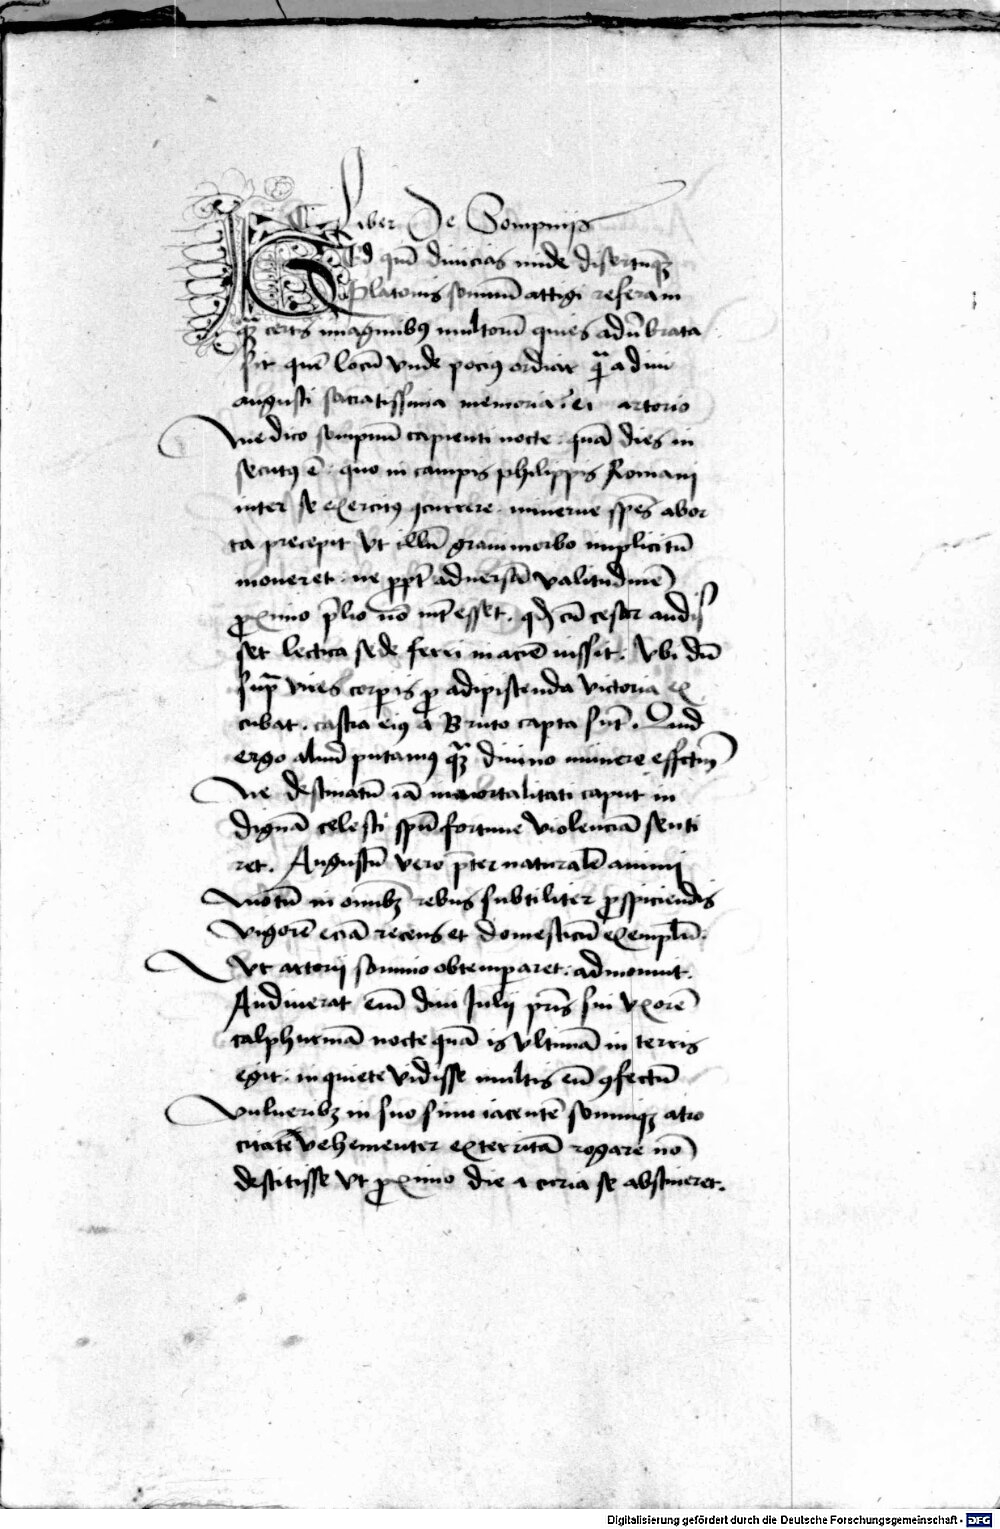 Liber De Sompnijs
Ed qm̄ diuicias unde disertusq̄
Platonis somnū attigi referam
qz certis imaginibꝰ multorū quies adūbrata
sit quē locū vnde pociꝰ ordiar q̄ a diui
augusti sacratissima memoria? ei artorio
medico sompnū capienti nocte . quā dies in
secutꝰ ē . quo in campis philippis Romani
inter se exercitꝰ ꝯcurrere . minerue spēs abor
ta precepit vt illū graui morbo implicitū
moneret . ne ꝓpt̄ aduersā valitudinē
ꝓximo p̄lio nō int̄esset . qd̄ cū cesar audis
set lectica sede ferri in aciē iussit . Vbi dū
sup̄ vires corporis ꝓ adipiscenda victoria ex
cubat . castra eiꝰ a Bruto capta sūt . Quid
ergo aliud putamꝰ qz diuino munere effectū
ne destinatū iā inmortalitati caput in
dignā celesti spū fortune violenciā senti
ret . Augustū vero p̄ter naturalē animi
motū in omībz rebus subtiliter ꝓspiciendis
vigorē eciā recens et domesticū exemplū .
Vt artorij somnio obtemperaret . admonuit .
Audiuerat enī diui Julij pr̄is sui vxorē
calphurniā nocte quā is vltimā in terris
egit . in quiete vidisse multis eū ꝯfectū
vulneribz in suo sinu iacentē somniqz atro
citate vehementer exterritā rogare nō
destitisse vt ꝓximo die a curia se abstineret .
Digitalisierung gefördert durch die Deutsche Forschungsgemeinschaft - DFG